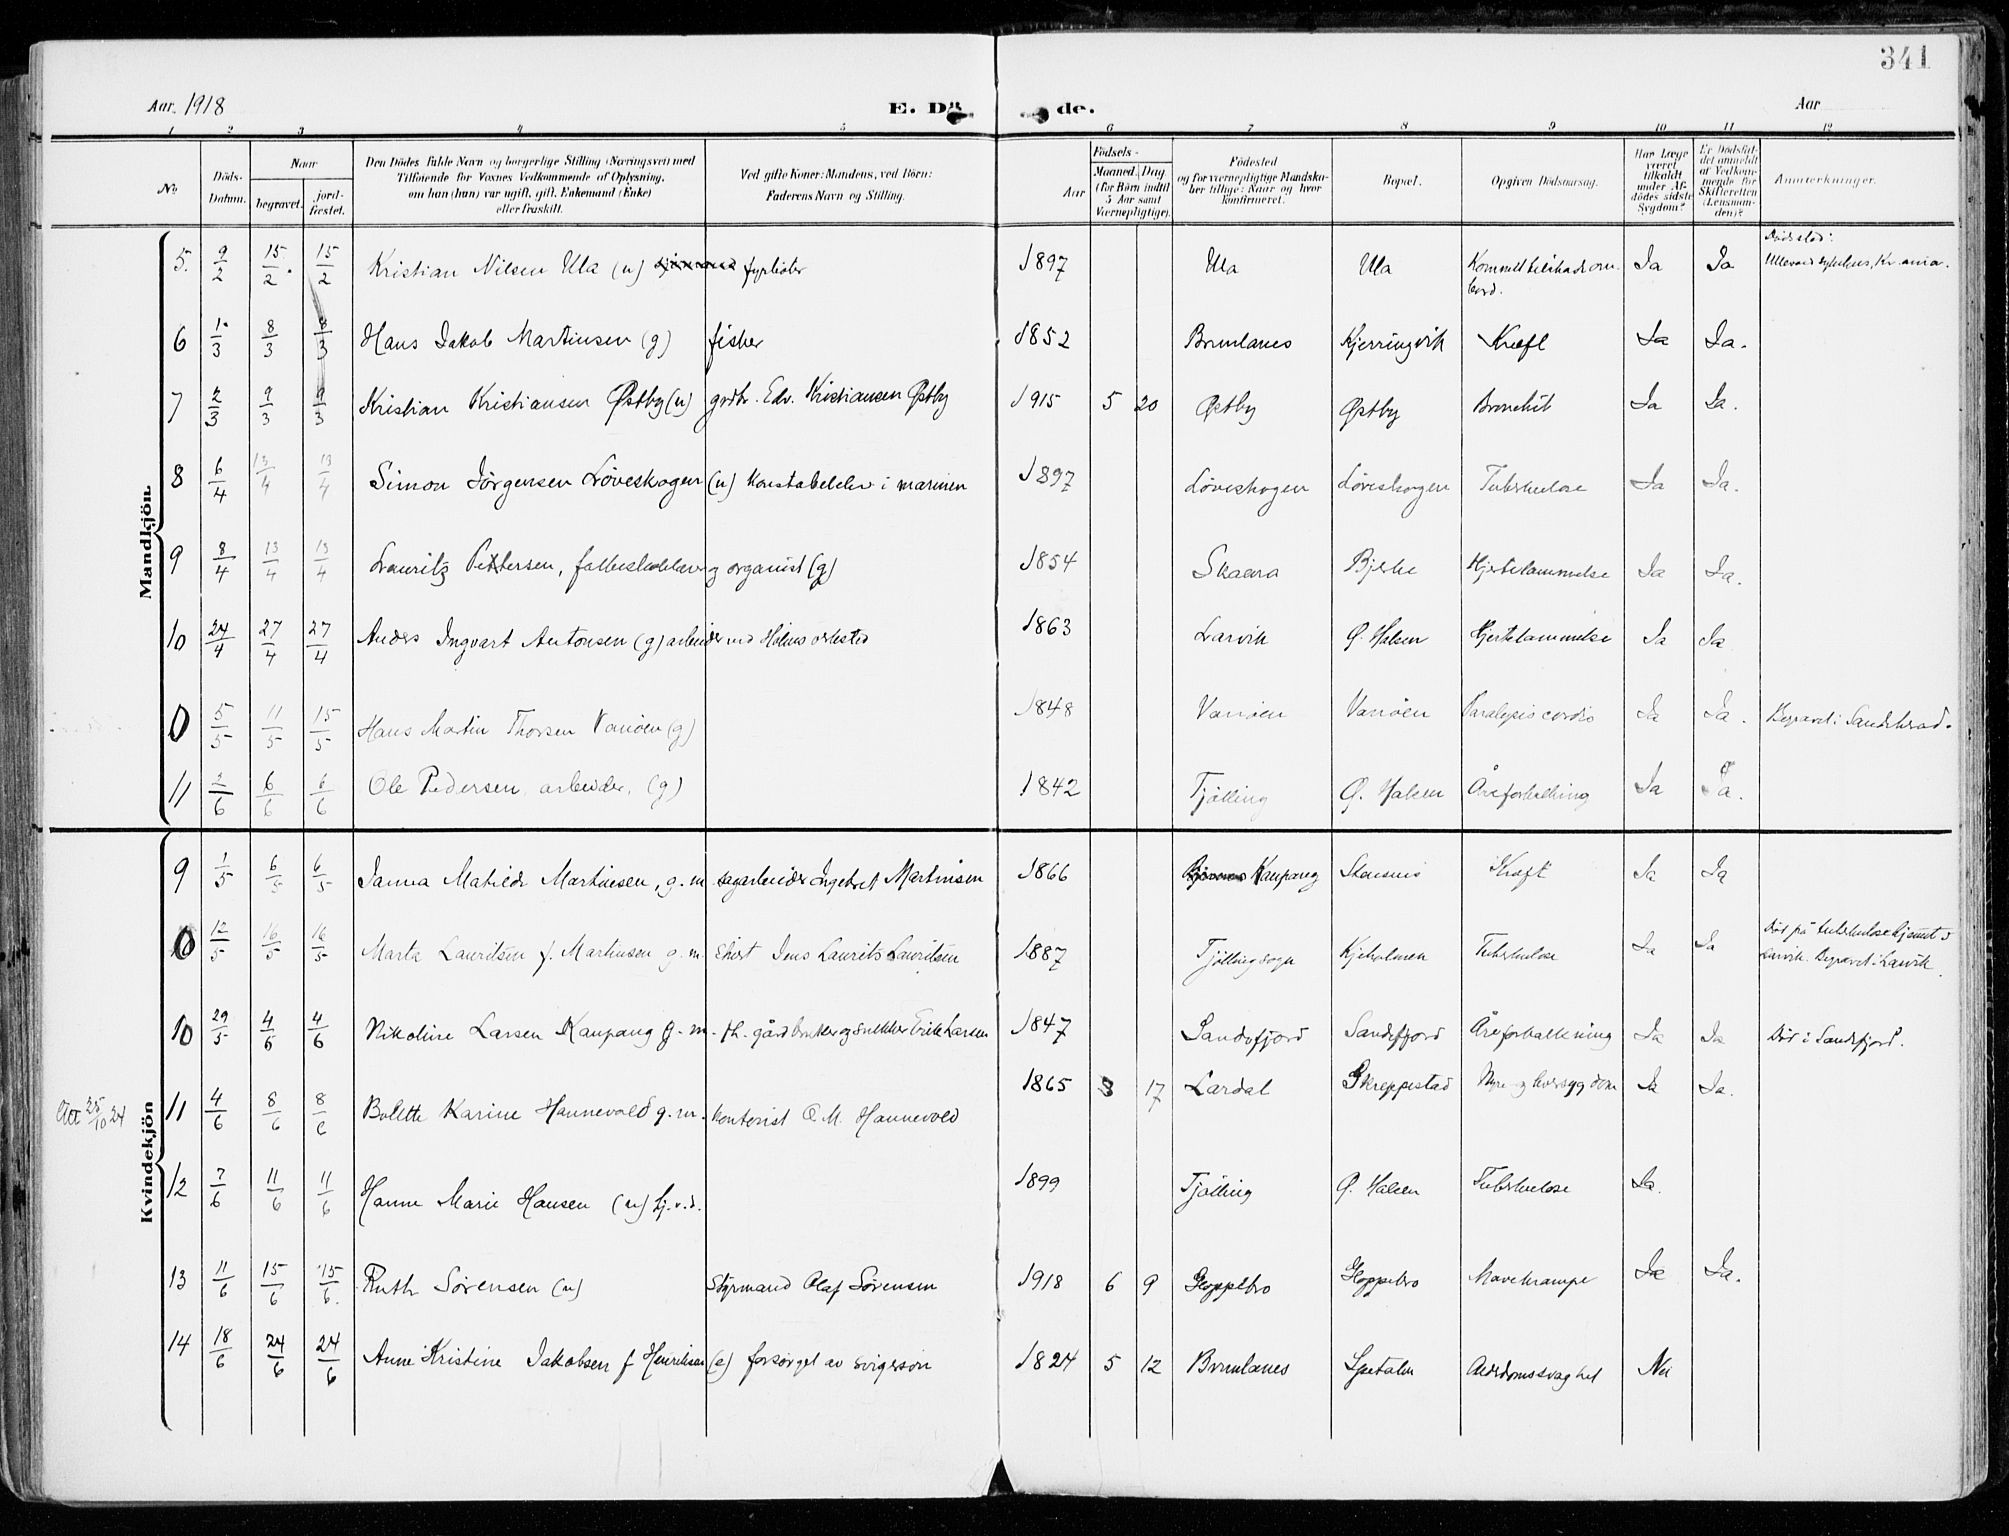 341
Aar 1918 E. Dö de. Aar
1 2 3 4 5 6 7 8 9 10 11 12
No. Döds-Datum. Naar begravet. jord-fæstet. Den Dödes fulde Navn og borgerlige Stilling (Næringsvei) med Tilföiende for Voxnes Vedkommende af Oplysning, om han (hun) var ugift, gift, Enkemand (Enke) eller fraskilt. Ved gifte Koner: Mandens, ved Börn: Faderens Navn og Stilling. Födsels- Aar Maaned. Dag (for Börn indtil 5 Aar samt Værnepligtige). Födested og for værnepligtige Mandskaber tillige: Naar og hvor konfirmeret. Bopæl. Opgiven Dödsaarsag. Har Læge været tilkaldt under Afdödes sidste Sygdom? Er Dödsfaldet anmeldt af Vedkommende for Skifteretten (Lensmanden)? Anmærkninger.
Mandkjön.
5. 9/2 15/2 15/2 Kristian Nilsen Ula (u) fyrböter 1897 Ula Ula Ja Ja Dödssted: Ullevaal sykehus, Kr.ania.
6 1/3 8/3 8/3 Hans Jakob Martinsen (g) fisker 1852 Brunlanes Kjerringvik Kræft Ja Ja.
7 2/3 9/3 9/3 Kristian Kristiansen Østby (u) grdbr. Edv. Kristiansen Østby 1915 5 20 Østby Østby Bronchit Ja Ja.
8 6/4 13/4 13/4 Simon Jørgensen Løveskogen (u) Konstabelelev i marinen 1897 Løveskogen Løveskogen Tuberkulose Ja Ja.
9 8/4 13/4 13/4 Lauritz Pettersen, folkeskolelærer og organist (g) 1854 Skaara Bjerke Hjertelammelse Ja Ja.
10 24/4 27/4 27/4 Anders Ingvart Antonsen (g) arbeider ved Holms verksted 1863 Larvik Ø. Halsen Hjertelammelse Ja Ja
0 5/5 11/5 15/5 Hans Martin Thorsen Variöen (g) 1848 Variöen Variöen Paralysis cordis Ja Ja. Begravet i Sandeherad.
11 2/6 6/6 6/6 Ole Pedersen arbeider, (g) 1842 Tjølling Ø. Halsen Åreforkalkning Ja Ja.
Kvindekjön
9 1/5 6/5 6/5 Janna Matilde Martinsen, g. m. sagarbeider Ingebret Martinsen 1866 Kaupang Kræft Ja Ja
0 12/5 16/5 16/5 Marta Lauritsen f. Martinsen g. m. Jens Laurits Lauritsen 1887 Tjøllingvogn Kjeholmen Tuberkulose Ja Ja Död på tuberkulosehjemmet i Larvik. Begravet i Larvik.
10 29/5 4/6 4/6 Nikoline Larsen Kaupang g. m. fh. gårdbruker og snekker Erik Larsen 1847 Sandefjord Sandefjord Åreforkalkning Ja Ja Död i Sandefjord.
Att 25/10 24 11 4/6 8/6 8/6 Bolette Karine Hannevold g. m. kontorist O. M. Hannevold 1865 3 17 Lardal Skreppestad Nyre- og hjertesygdom Ja Ja.
12 7/6 11/6 11/6 Hanne Marie Hansen (u) hj.v.d. 1899 Tjølling Ø. Halsen Tuberkulose Ja.
13 11/6 15/6 15/6 Ruth Sörensen (u) Styrmand Olaf Sörensen 1918 6 9 Gloppebro Gloppebro Mavekrampe Ja Ja.
14 18/6 24/6 24/6 Anne Kristine Jakobsen f Henriksen (e) forsørget av svigersøn 1824 5 12 Brunlanes Spetalen Alderdomssvaghet Nei